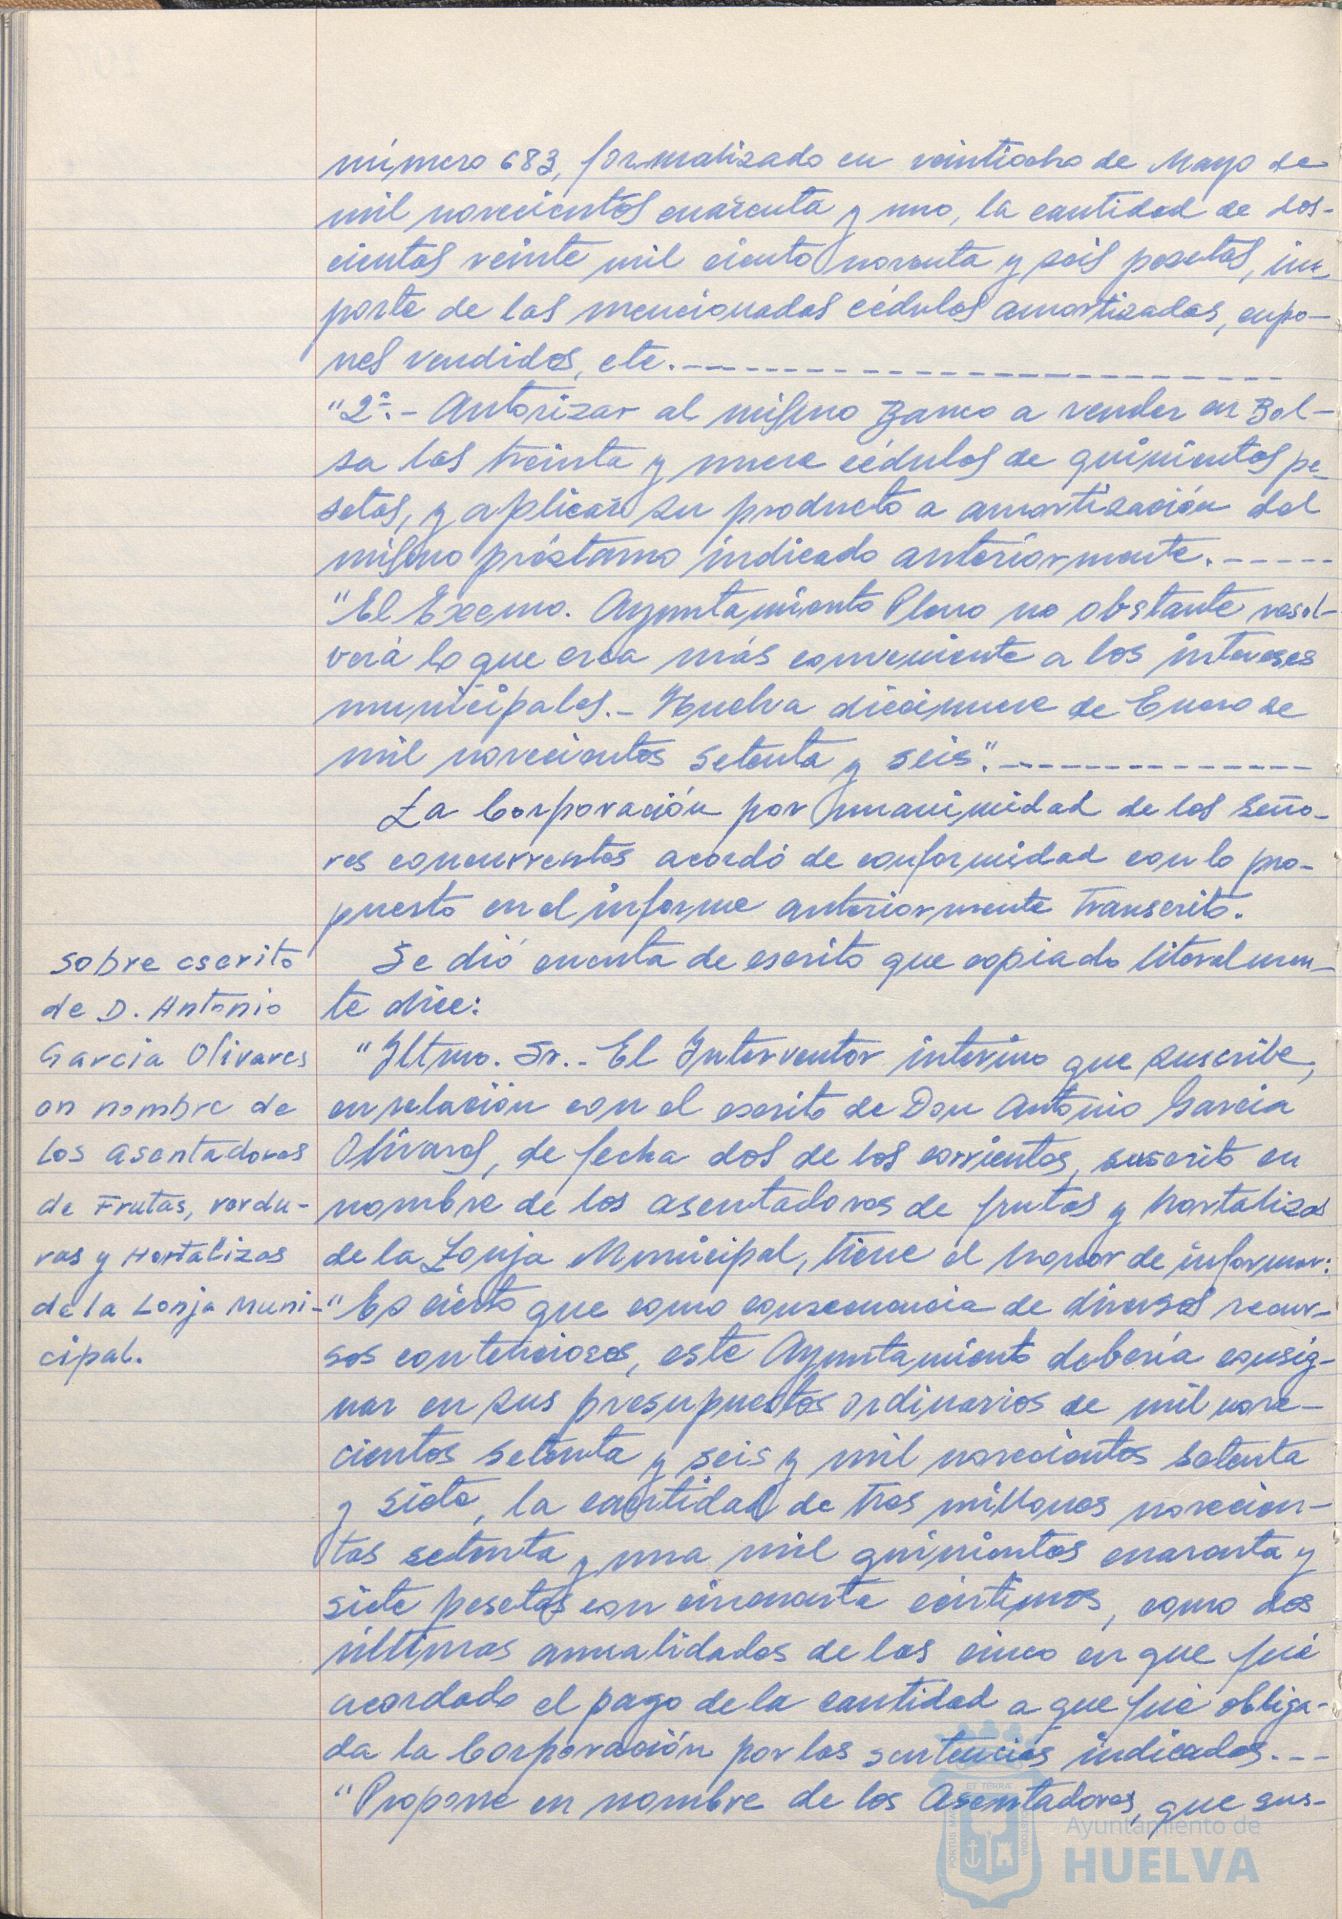 número 683, formalizado en veintiocho de Mayo de
mil novecientos cuarenta y uno, la cantidad de dos-
cientas veinte mil ciento noventa y seis pesetas, im-
porte de las mencionadas cédulas amortizadas, cupo-
nes vendidos, etc.
"2º.- Autorizar al mismo Banco a vender en Bol-
sa las treinta y nueve cédulas de quinientas pe-
setas, y aplicar su producto a amortización del
mismo préstamo indicado anteriormente.
"El Excmo. Ayuntamiento Pleno no obstante resol-
verá lo que crea más conveniente a los intereses
municipales.- Huelva diecinueve de Enero de
mil novecientos setenta y seis".
La Corporación por unanimidad de los Seño-
res concurrentes acordó de conformidad con lo pro-
puesto en el informe anteriormente transcrito.
Sobre escrito
de D. Antonio
Garcia Olivares
en nombre de
los asentadores
de Frutas, verdu-
ras y Hortalizas
de la Lonja Muni-
cipal.
Se dió cuenta de escrito que copiado literalmen-
te dice:
"Iltmo. Sr.- El Interventor interino que suscribe,
en relación con el escrito de Don Antonio Garcia
Olivares, de fecha dos de los corrientes, suscrito en
nombre de los asentadores de frutas y hortalizas
de la Lonja Municipal, tiene el honor de informar:
"Es cierto que como consecuencia de diversos recur-
sos contenciosos, este Ayuntamiento debería consig-
nar en sus presupuestos ordinarios de mil nove-
cientos setenta y seis y mil novecientos setenta
y siete, la cantidad de tres millones novecien-
tas setenta y una mil quinientas cuarenta y
siete pesetas con cincuenta céntimos, como dos
últimas anualidades de las cinco en que fué
acordado el pago de la cantidad a que fué obliga-
da la Corporación por las sentencias indicadas.
"Propone en nombre de los Asentadores, que sus-
ET TERRAE
PORTUS MARIS
CUSTODIA
Ayuntamiento de
HUELVA